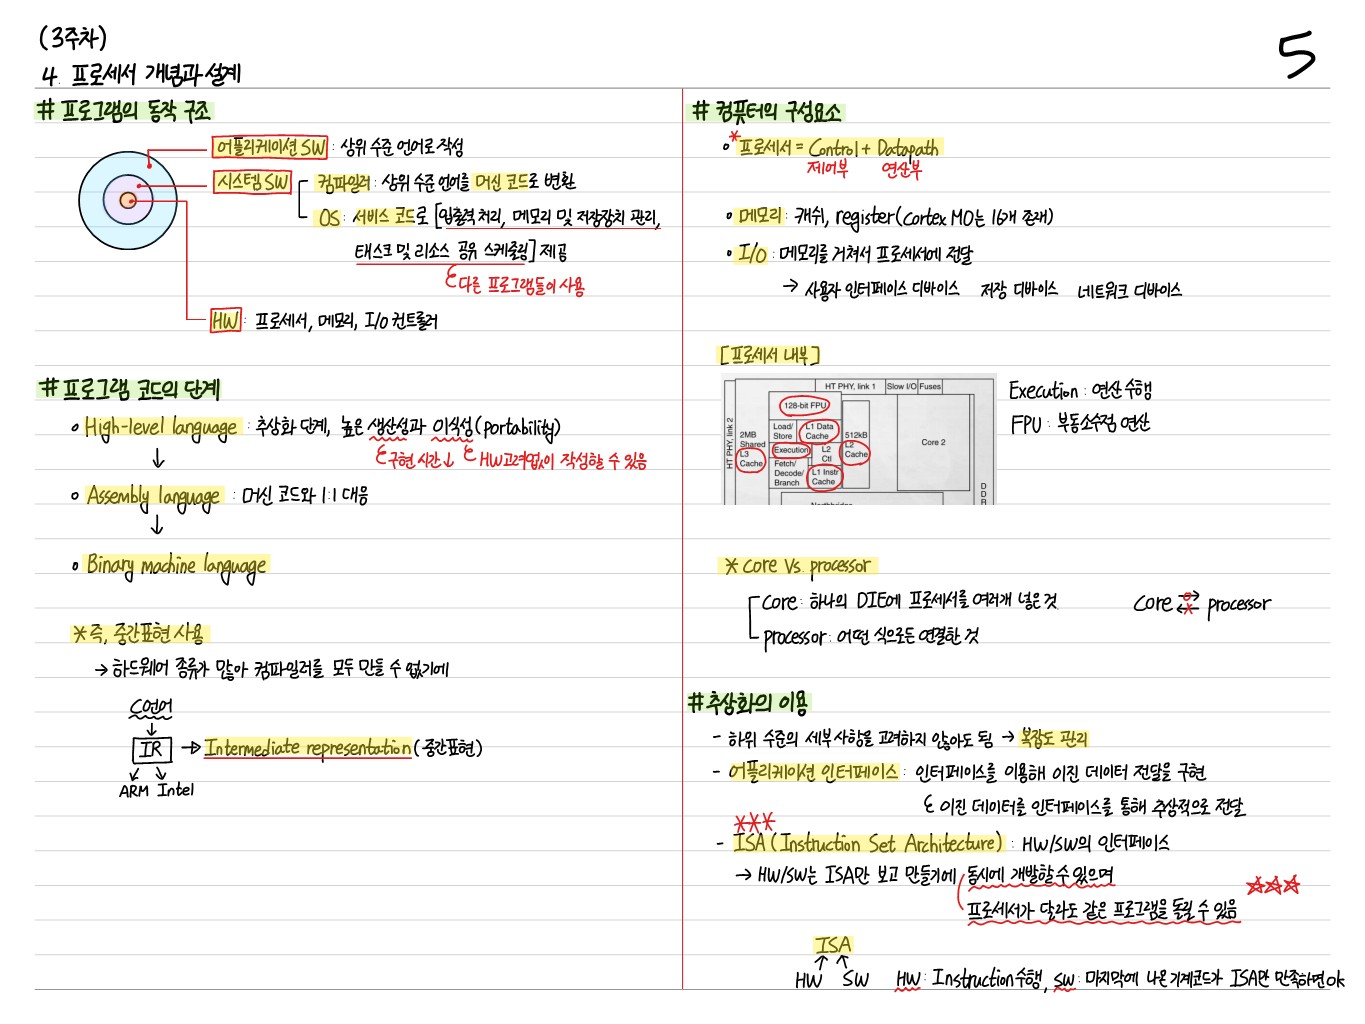 (3주차)
4. 프로세서 개념과 설계
5
# 프로그램의 동작 구조
어플리케이션 SW : 상위 수준 언어로 작성
시스템 SW
컴파일러 : 상위 수준 언어를 머신 코드로 변환
OS : 서비스 코드로 [입출력 처리, 메모리 및 저장장치 관리,
태스크 및 리소스 공유 스케줄링] 제공
다른 프로그램들이 사용
HW : 프로세서, 메모리, I/O 컨트롤러
# 프로그램 코드의 단계
• High-level language : 추상화 단계, 높은 생산성과 이식성(portability)
구현 시간↓ HW고려없이 작성할 수 있음
↓
• Assembly language : 머신 코드와 1:1 대응
↓
• Binary machine language
* 즉, 중간표현 사용
→ 하드웨어 종류가 많아 컴파일러를 모두 만들 수 없기에
C언어
↓
IR → Intermediate representation (중간표현)
↙ ↘
ARM Intel
# 컴퓨터의 구성요소
* • 프로세서 = Control + Datapath
제어부 연산부
• 메모리 : 캐쉬, register(Cortex M0는 16개 존재)
• I/O : 메모리를 거쳐서 프로세서에 전달
→ 사용자 인터페이스 디바이스 저장 디바이스 네트워크 디바이스
[프로세서 내부]
HT PHY, link 1 Slow I/O Fuses
HT PHY, link 2
128-bit FPU
2MB Shared L3 Cache
Load/Store
L1 Data Cache
512kB L2 Cache
Execution
L2 Ctl
Fetch/Decode/Branch
L1 Instr Cache
Core 2
Northbridge
D D R
Execution : 연산 수행
FPU : 부동소수점 연산
* Core Vs. processor
Core : 하나의 DIE에 프로세서를 여러개 넣은 것
processor : 어떤 식으로든 연결한 것
Core ⇄ processor
# 추상화의 이용
- 하위 수준의 세부사항을 고려하지 않아도 됨 → 복잡도 관리
- 어플리케이션 인터페이스 : 인터페이스를 이용해 이진 데이터 전달을 구현
이진 데이터를 인터페이스를 통해 추상적으로 전달
***
- ISA (Instruction Set Architecture) : HW/SW의 인터페이스
→ HW/SW는 ISA만 보고 만들기에 동시에 개발할 수 있으며
☆☆☆
프로세서가 달라도 같은 프로그램을 돌릴 수 있음
ISA
HW SW
HW : Instruction 수행, SW : 마지막에 나온 기계코드가 ISA만 만족하면 ok